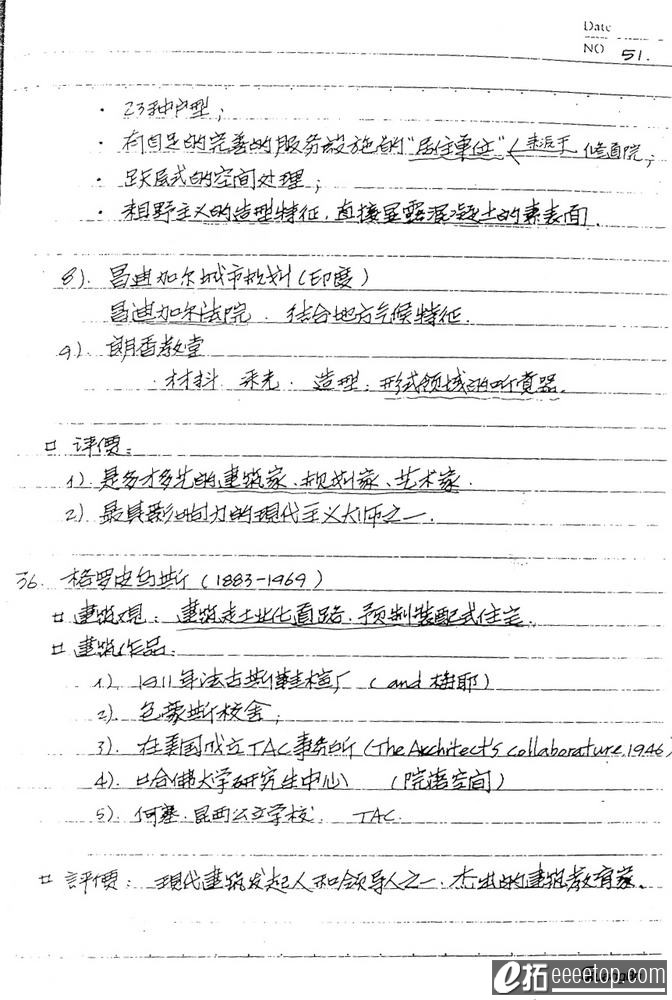 Date
NO 51.
· 23种户型；
· 有自足的完善的服务设施的“居住单位”< 来源于 修道院；
· 跃层式的空间处理；
· 粗野主义的造型特征，直接显露混凝土的素表面.
8）. 昌迪加尔城市规划（印度）
昌迪加尔法院 . 结合地方气候特征.
9）. 朗香教堂
· 材料 采光 · 造型：形式领域的听觉器.
口 评價：
1）. 是多才多艺的建筑家、规划家、艺术家.
2）. 最具影响力的現代主义大师之一.
36. 格罗皮乌斯（1883-1969）
口 建筑观：建筑走工业化道路.预制装配式住宅.
口 建筑作品：
1）. 1911年法古斯鞋楦厂（and 梅耶）
2）. 包豪斯校舍；
3）. 在美国成立TAC事务所（The Architect's collaborature.1946）
4）. 哈佛大学研究生中心 （院落空间）
5）. 何塞·昆西公立学校. TAC.
口 評價：現代建筑发起人和领导人之一.杰出的建筑教育家.
e拓 eeetop.com